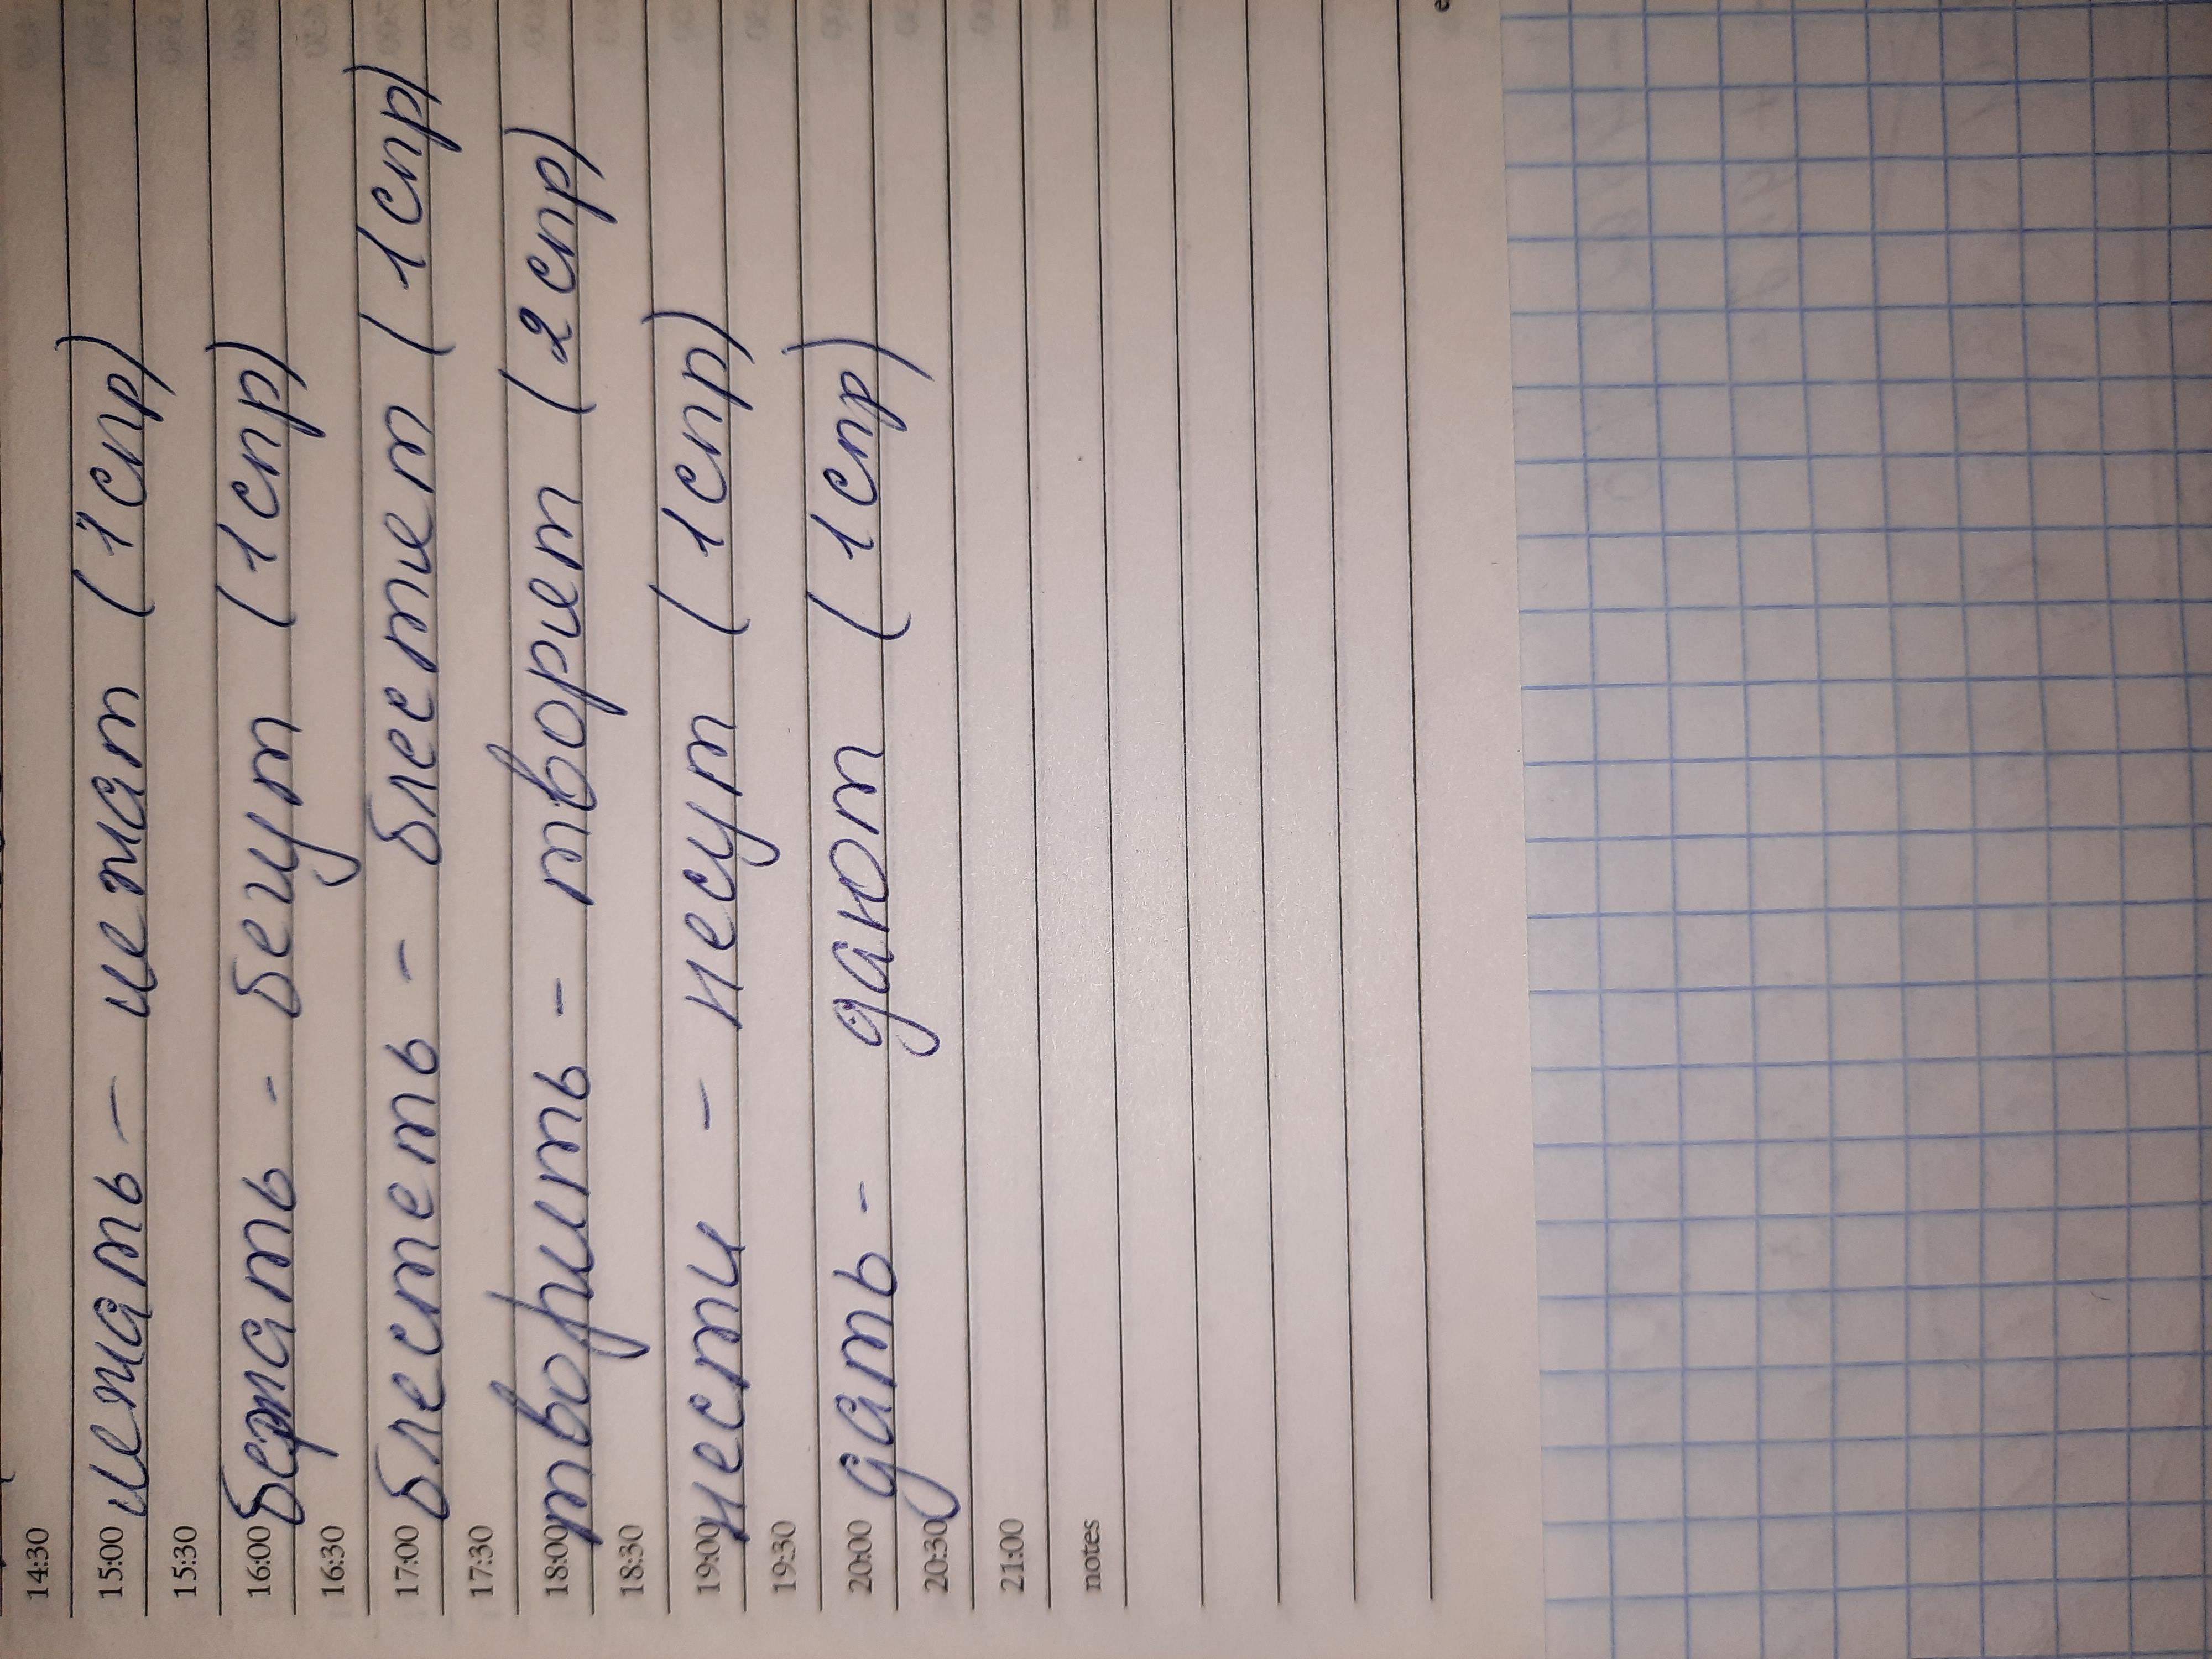 14:30
15:00 лежать - лежат (1 спр)
15:30
16:00 бежать - бегут (1 спр)
16:30
17:00 блестеть - блестет (1 спр)
17:30
18:00 творить - творет (2 спр)
18:30
19:00 нести - несут (1 спр)
19:30
20:00 дать - дают (1 спр)
20:30
21:00
notes